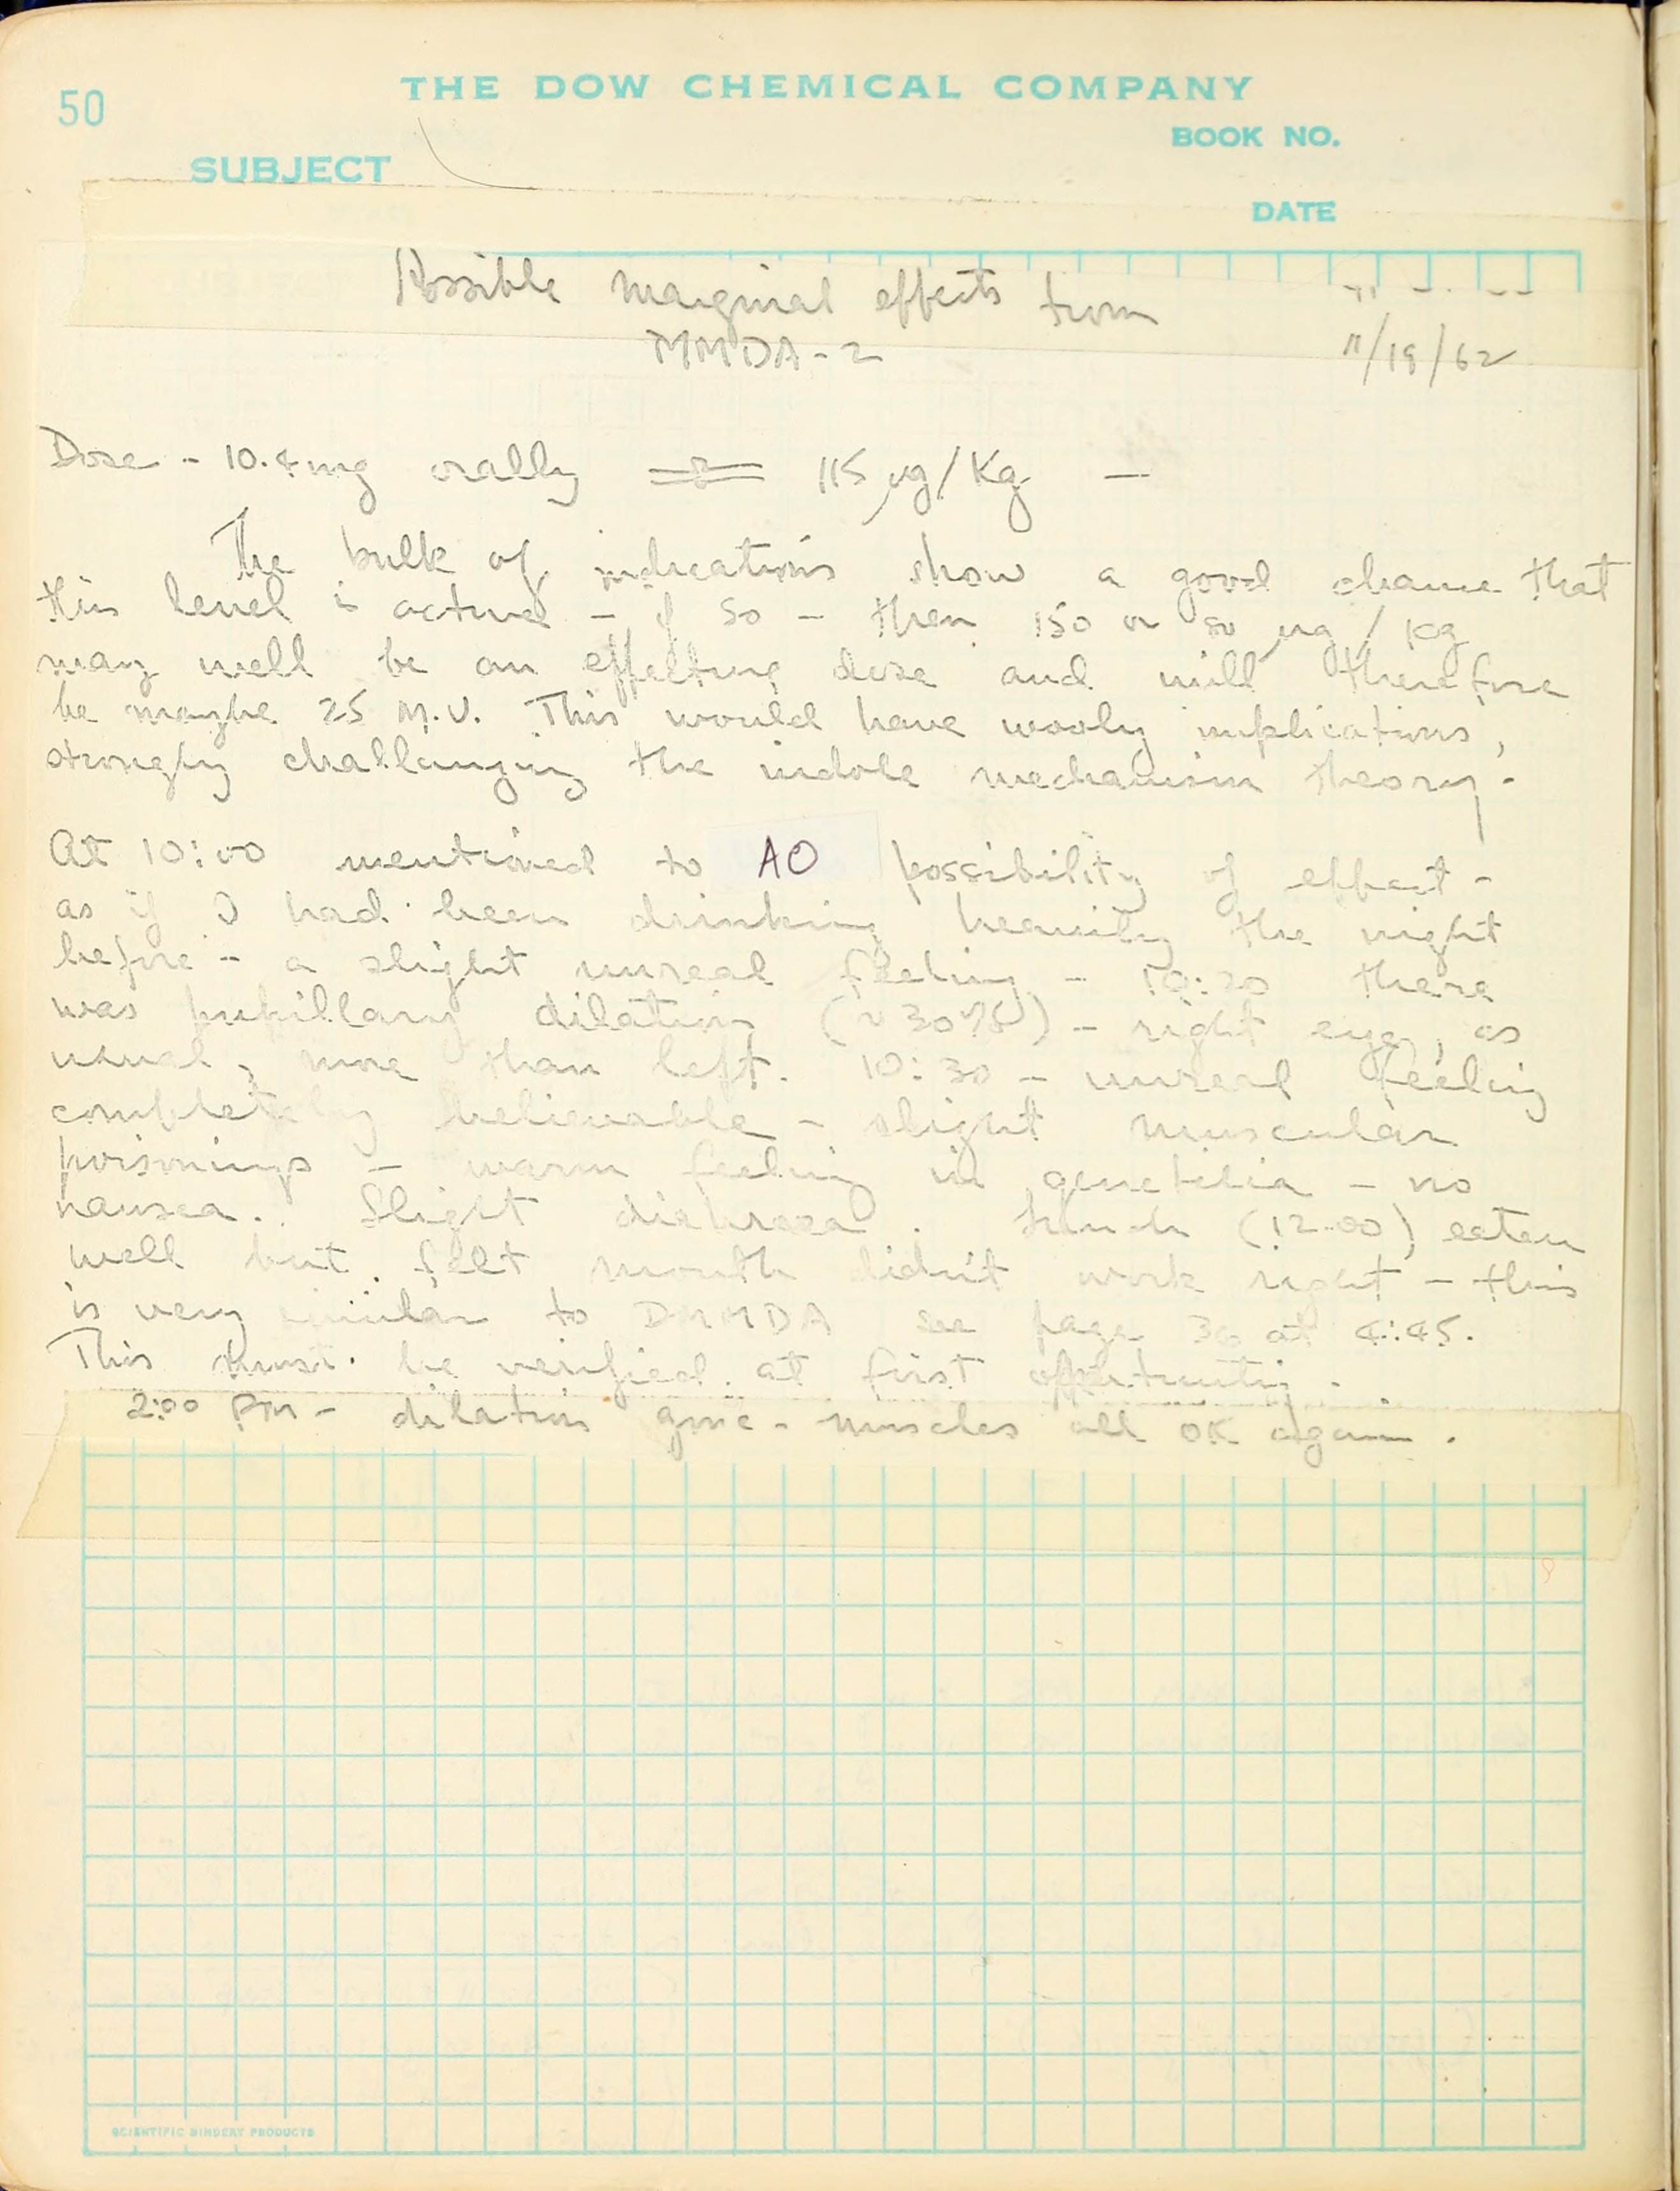 50
THE DOW CHEMICAL COMPANY
BOOK NO.
SUBJECT
DATE
Possible marginal effects from
MMDA-2
11/19/62
Dose - 10.4 mg orally ⇌ 115 µg/Kg —
The bulk of indications show a good chance that
this level is active - if so - then 150 or so µg/Kg
may well be an effective dose and will therefore
be maybe 25 M.U. This would have wooly implications,
strongly challanging the indole mechanism theory.
At 10:00 mentioned to AO possibility of effect -
as if I had been drinking heavily the night
before - a slight unreal feeling - 10:20 there
was pupillary dilation (~30%) - right eye, as
usual, more than left. 10:30 - unreal feeling
completely believable - slight muscular
poisonings - warm feeling in genetilia - no
nausea. Slight diahrrea. Lunch (12:00) eaten
well but felt mouth didn't work right - this
is very similar to DMMDA see page at 4:45.
This must be verified at first opportunity.
2:00 PM - dilation gone - muscles all OK again.
SCIENTIFIC BINDERY PRODUCTS